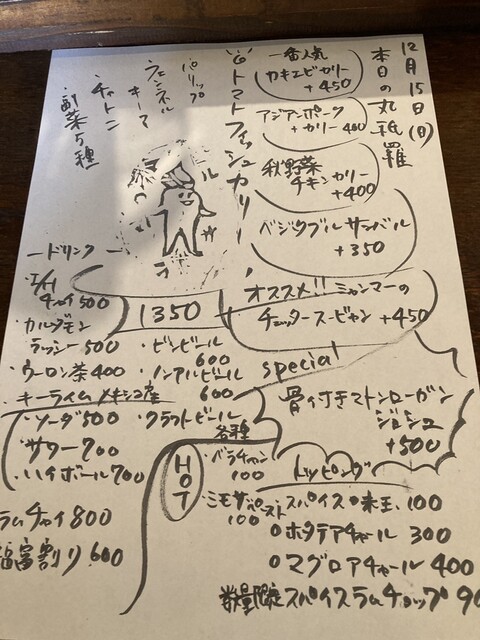 12月15日(日)
本日の丸祇羅
一番人気
カキエビカリー
+450
アジアンポーク
+カリー400
秋野菜
チキンカリー
+400
ベジタブルサンバル
+350
オススメ!!ミャンマーの
チェッターヒン +450
special
骨付きマトンローガン
ジョシュ
+500
トマトフィッシュカリー
・パリップ
・フェンネル
キーマ
・チャトニ
・副菜5種
1350
ードリンクー
チャイ500
・カルダモン
ラッシー500
・ウーロン茶400
・キーライムメキシコ産
・ソーダ500
・サワー700
・ハイボール700
ラムチャイ800
福富割り600
・ビンビール
600
・ノンアルビール
600
・クラフトビール
各種
HOT
・バラチャン
100
・ミモザペースト
100
トッピング
スパイス味玉 100
ホタテアチャール 300
マグロアチャール 400
数量限定スパイスラムチョップ